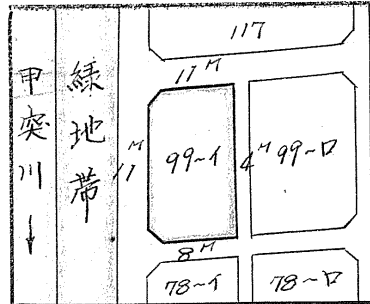 甲突川
緑地帯
117
11M
11M
99~イ
4M
99~ロ
8M
78~イ
78~ロ